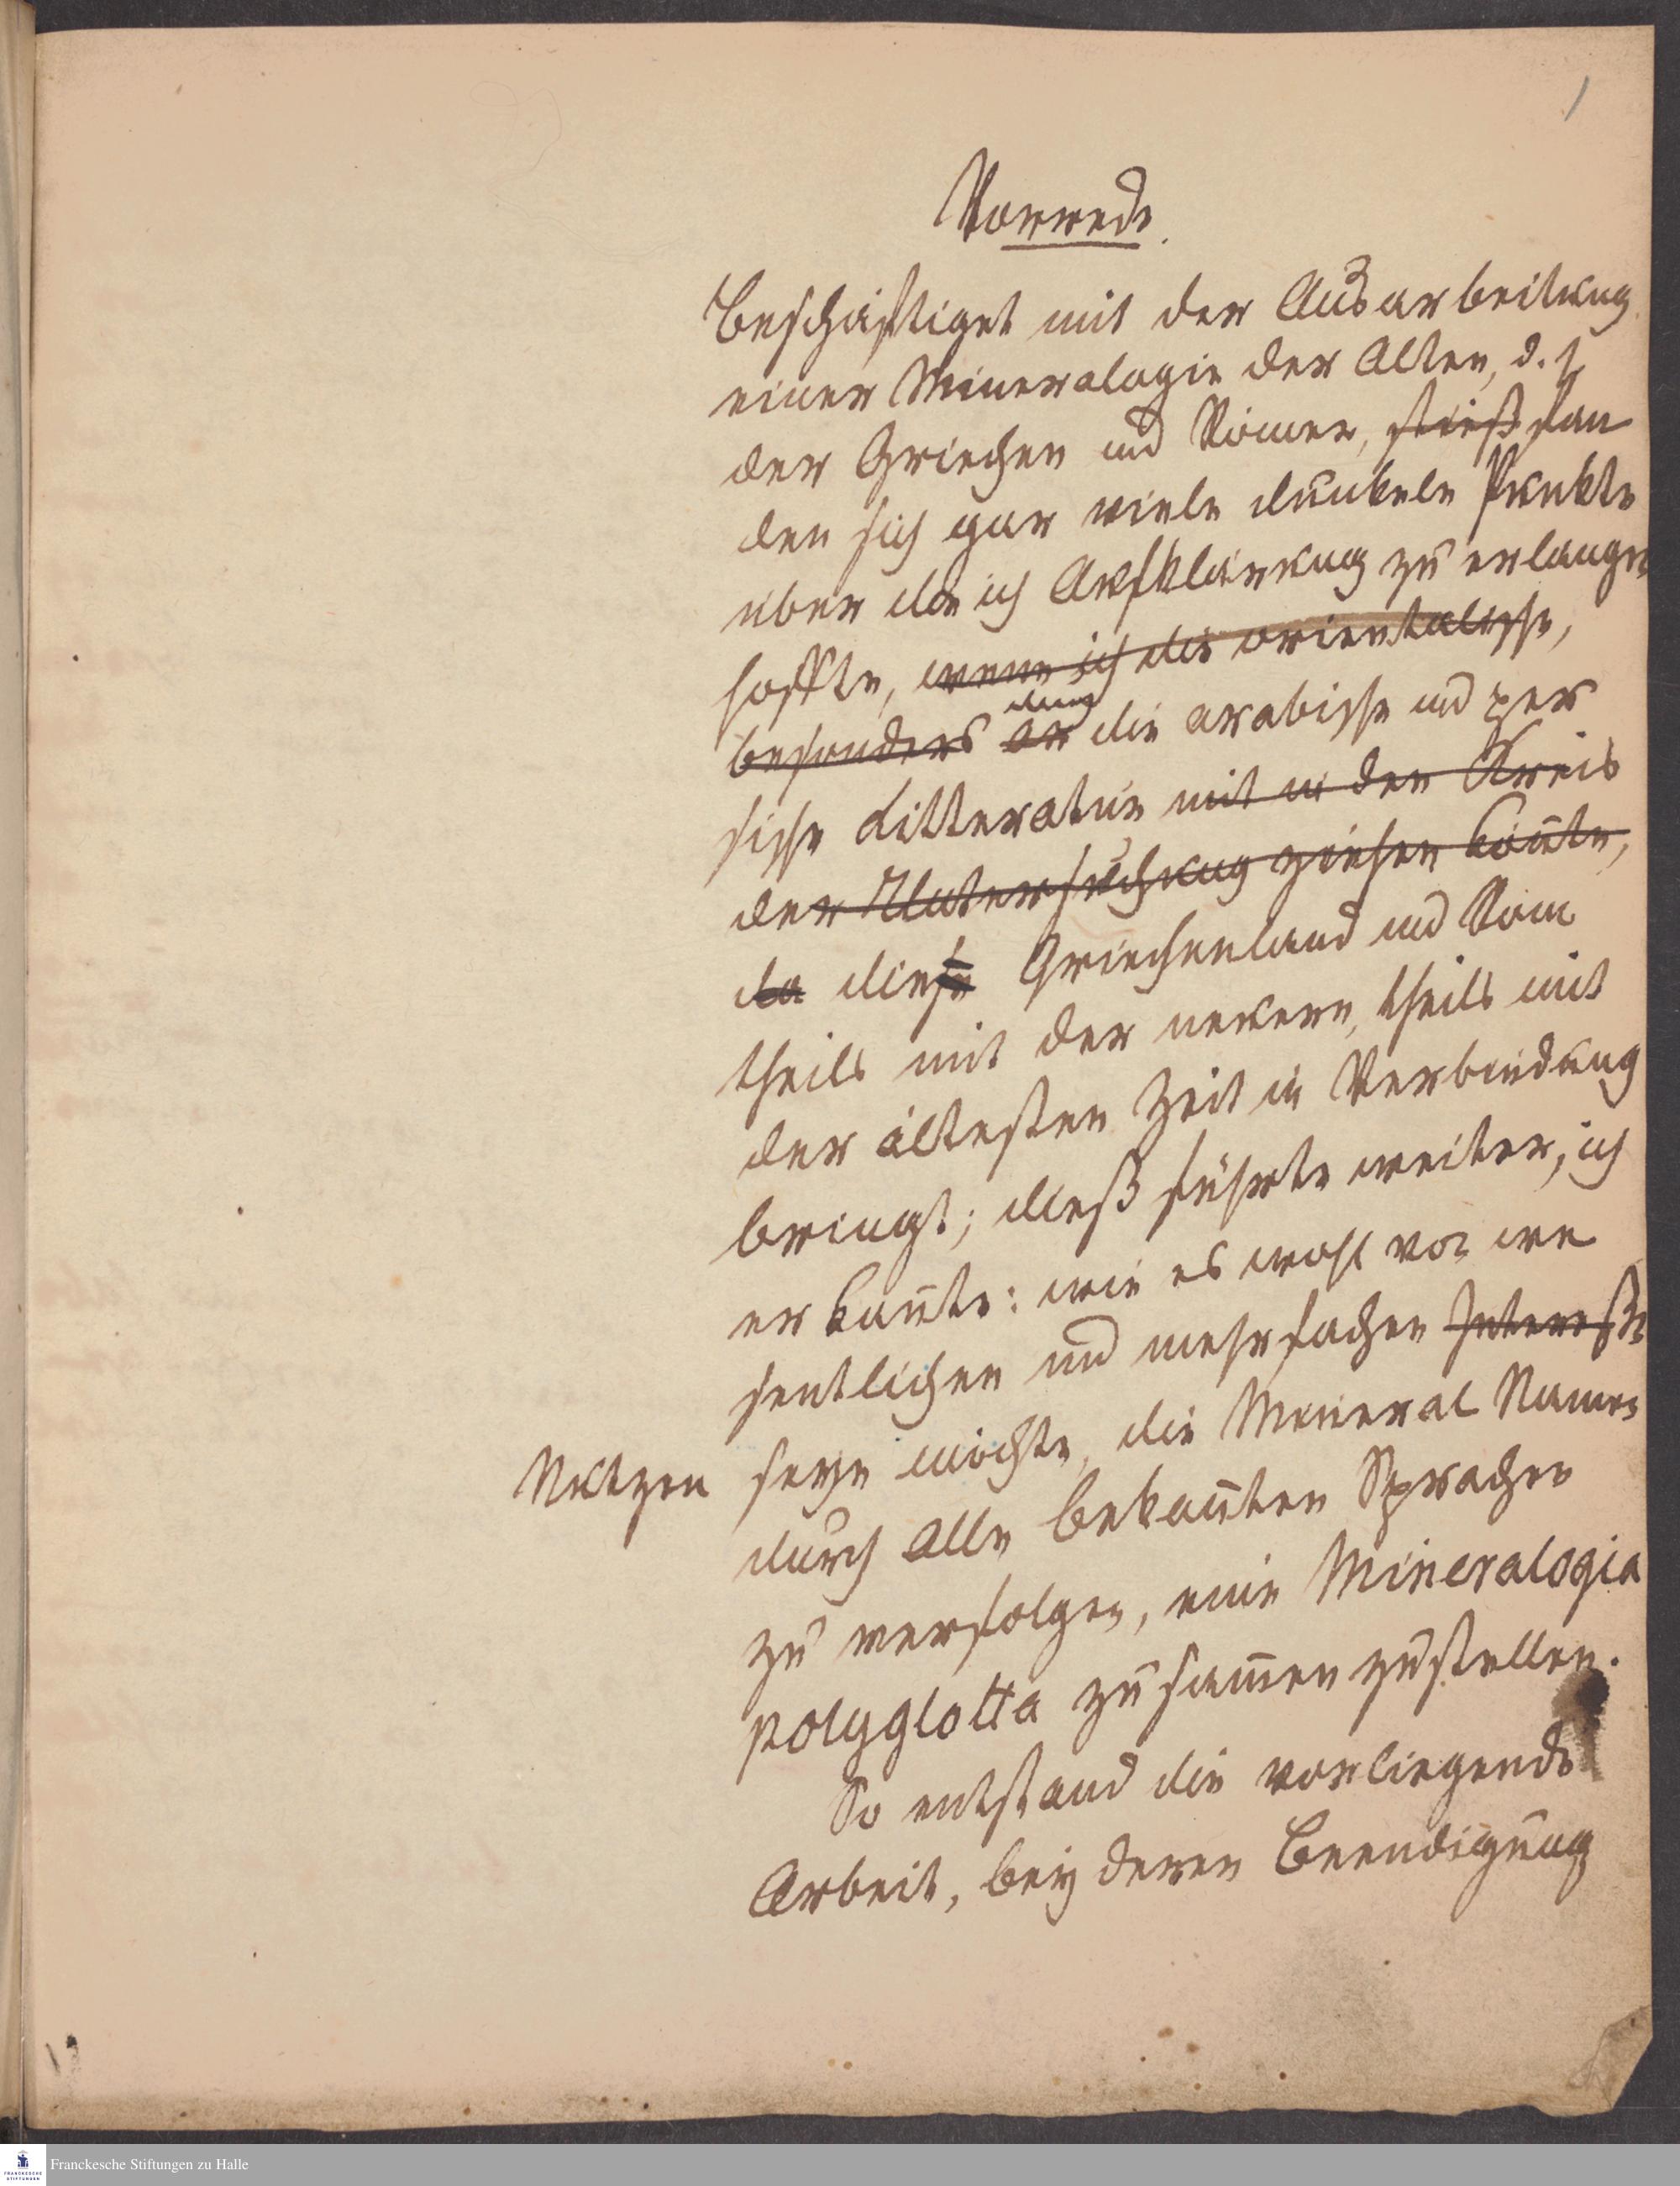 1
Vorrede.
Beschäftiget mit der Ausarbeitung
einer Mineralogie der Alten, d. h.
der Griechen und Römer, stieß fan
den sich gar viele dunkele Punkte
über die ich Aufklärung zu erlangen
hoffte, wenn ich die orientalische,
besonders ar die arabische und per
durch
sische Litteratur mit in den Kreis
der Untersuchung ziehen könnte,
da diese Griechenland und Rom
theils mit der neuern, theils mit
der ältesten Zeit in Verbindung
bringt; dieß führte weiter, ich
erkannte: wie es wohl von we
sentlichen und mehrfachen Interesse
Nutzen seyn möchte, die Mineral Namen
durch alle bekannten Sprachen
zu verfolgen, eine Mineralogia
polyglotta zusammen zustellen.
So entstand die vorliegende
Arbeit, bey deren Beendigung
Franckesche Stiftungen zu Halle
FRANCKESCHE
STIFTUNGEN